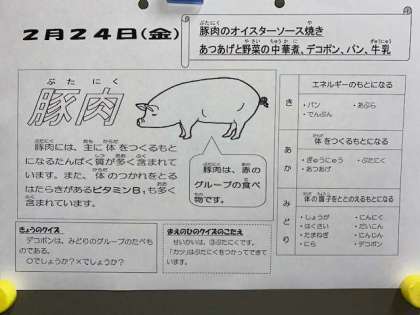 2月24日(金)
豚肉のオイスターソース焼き
あつあげと野菜の中華煮、デコポン、パン、牛乳
ぶたにく
豚肉
豚肉には、主に体をつくるもと
になるたんぱく質が多く含まれて
います。また、体のつかれをとる
はたらきがあるビタミンB₁も多く
含まれています。
豚肉は、赤の
グループの食べ
物です。
き
エネルギーのもとになる
・パン ・あぶら
・でんぷん
あか
体をつくるもとになる
・ぎゅうにゅう ・ぶたにく
・あつあげ
みどり
体の調子をととのえるもとになる
・しょうが ・にんにく
・はくさい ・だいこん
・たまねぎ ・にんじん
・にら ・デコポン
きょうのクイズ
デコポンは、みどりのグループのたべも
のである。
○でしょうか?×でしょうか?
まえのひのクイズのこたえ
せいかいは、③ぶたにくです。
「カツ」はぶたにくをつかってできて
います。